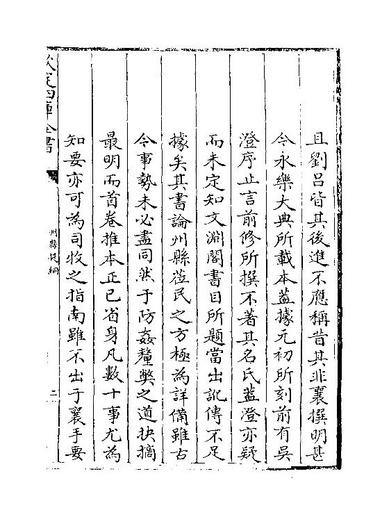 且劉呂皆其後進不應稱昔其非襄撰明甚
今永樂大典所載本蓋據元初所刻前有吳
澄序止言前修所撰不著其名氏蓋澄亦疑
而未定知文淵閣書目所題當出訛傳不足
據矣其書論州縣莅民之方極為詳備雖古
今事勢未必盡同然于防姦釐弊之道抉摘
最明而首卷推本正己省身凡數十事尤為
知要亦可為司牧之指南雖不出于襄手要
欽定四庫全書
州縣提綱
二